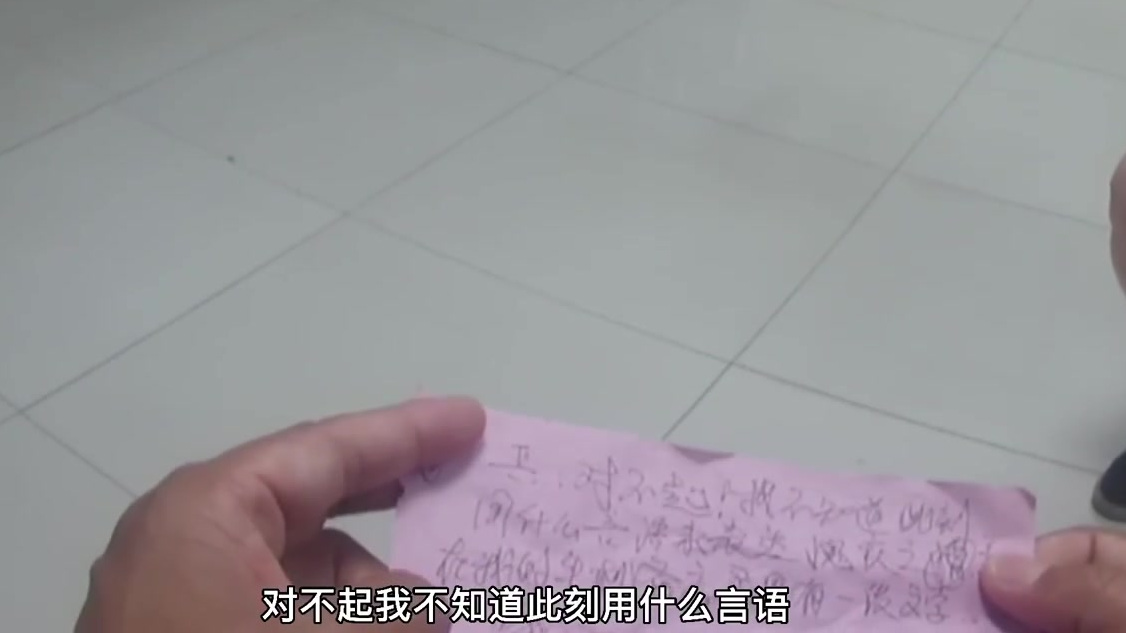 对不起!我不知道此刻
用什么言语来表达愧疚之情
在我的
有一段文字
对不起我不知道此刻用什么言语